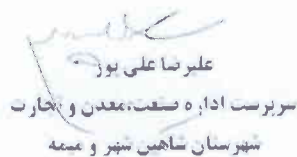 علیرضا علی پور
سرپرست اداره صنعت،معدن و تجارت
شهرستان شاهین شهر و میمه